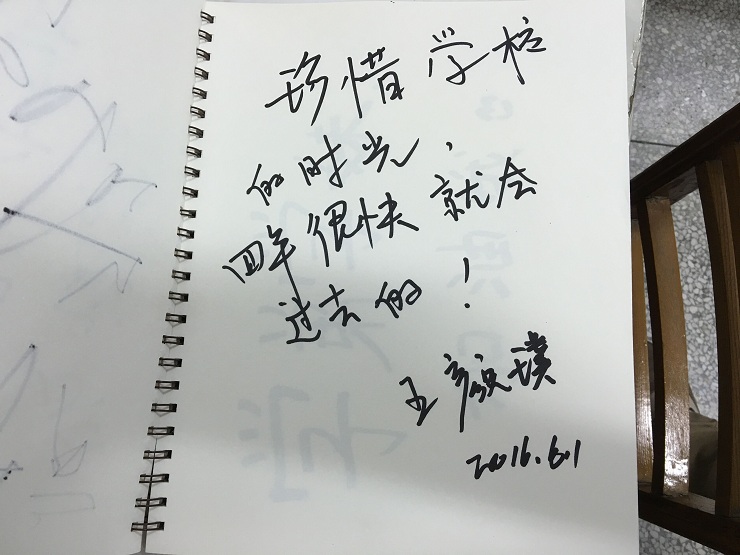 珍惜学校
的时光,
四年很快就会
过去的!
王颜璞
2016.6.1